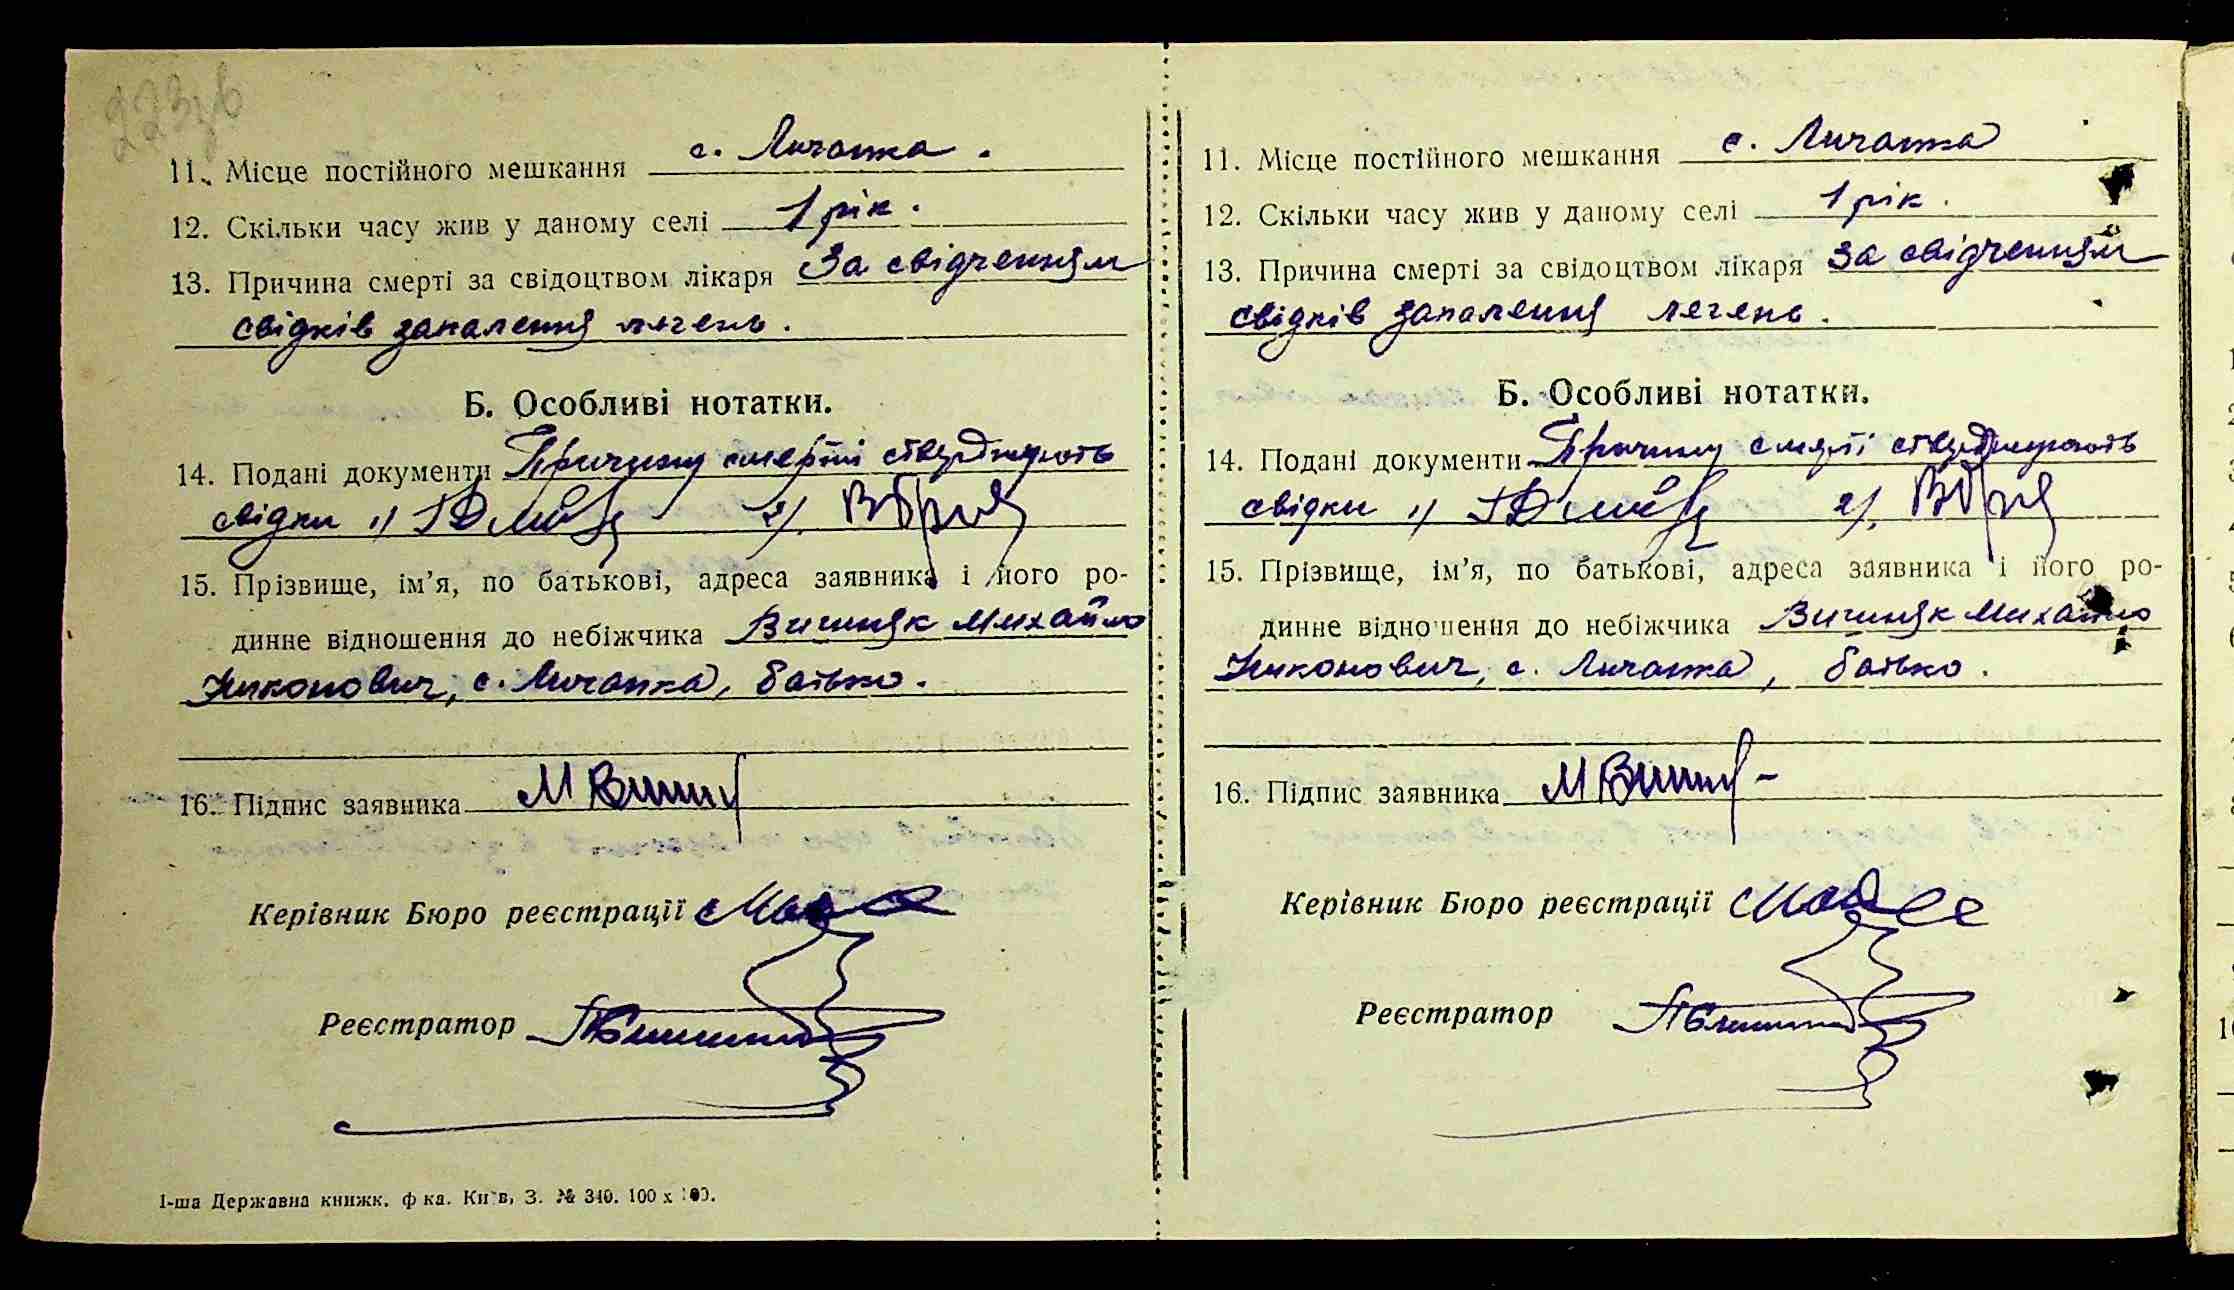 223зв
11. Місце постійного мешкання с. Личанка.
12. Скільки часу жив у даному селі 1 рік.
13. Причина смерті за свідоцтвом лікаря За свідченням
свідків запалення легень.
Б. Особливі нотатки.
14. Подані документи Причину смерті стверджують
свідки 1) 2).
15. Прізвище, ім'я, по батькові, адреса заявника і його ро-
динне відношення до небіжчика Вигиняк Михайло
Никонович, с. Личанка, батько.
16. Підпис заявника
Керівник Бюро реєстрації
Реєстратор
І-ша Державна книжк. ф ка. Київ, З. № 340. 100 х 100.
11. Місце постійного мешкання с. Личанка
12. Скільки часу жив у даному селі 1 рік.
13. Причина смерті за свідоцтвом лікаря За свідченням
свідків запалення легень.
Б. Особливі нотатки.
14. Подані документи Причину смерті стверджують
свідки 1) 2).
15. Прізвище, ім'я, по батькові, адреса заявника і його ро-
динне відношення до небіжчика Вигиняк Михайло
Никонович, с. Личанка, батько.
16. Підпис заявника
Керівник Бюро реєстрації
Реєстратор